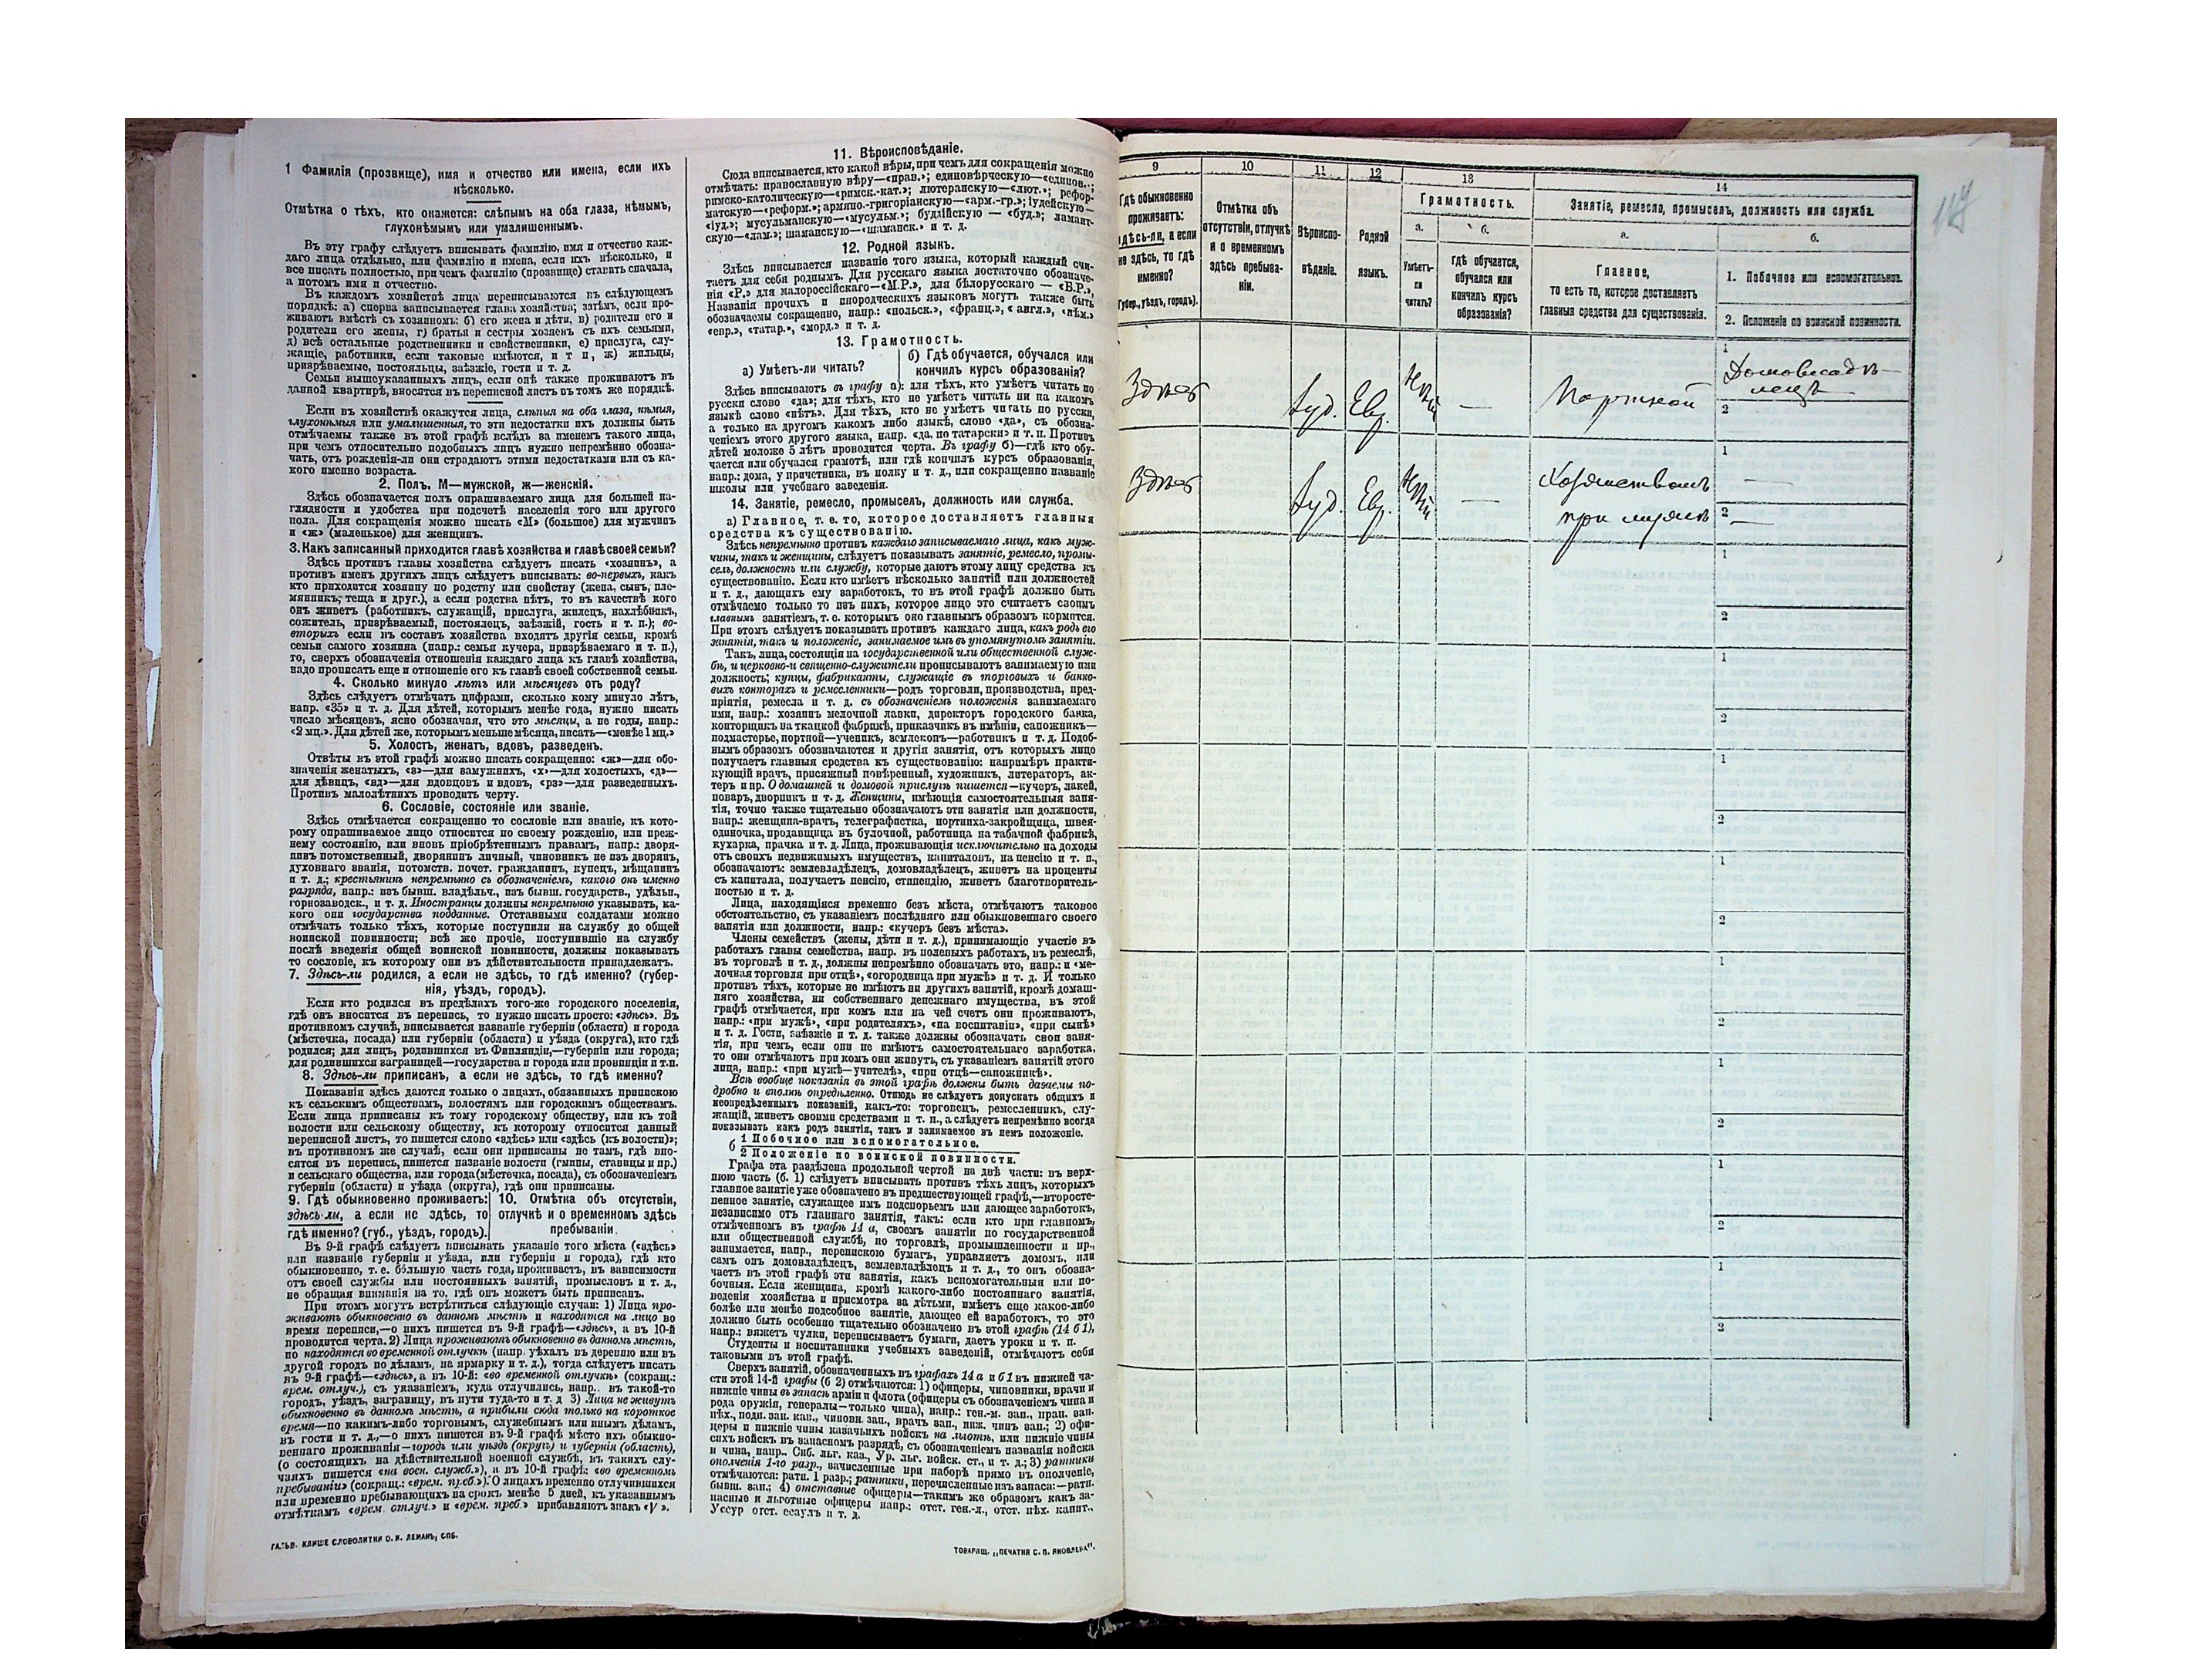 1 Фамилія (прозвище), имя и отчество или имена, если ихъ
нѣсколько.
Отмѣтка о тѣхъ, кто окажется: слѣпымъ на оба глаза, нѣмымъ,
глухонѣмымъ или умалишеннымъ.
Въ эту графу слѣдуетъ вписывать фамилію, имя и отчество каж-
даго лица отдѣльно, или фамилію и имена, если ихъ нѣсколько, и
все писать полностью, при чемъ фамилію (прозвище) ставить сначала,
а потомъ имя и отчество.
Въ каждомъ хозяйствѣ лица переписываются въ слѣдующемъ
порядкѣ: а) сперва записывается глава хозяйства; затѣмъ, если про-
живаютъ вмѣстѣ съ хозяиномъ: б) его жена и дѣти, в) родители его и
родители его жены, г) братья и сестры хозяевъ съ ихъ семьями,
д) всѣ остальные родственники и свойственники, е) прислуга, слу-
жащіе, работники, если таковые имѣются, и т п, ж) жильцы,
призрѣваемые, постояльцы, заѣзжіе, гости и т. д.
Семьи вышеуказанныхъ лицъ, если онѣ также проживаютъ въ
данной квартирѣ, вносятся въ переписной листъ въ томъ же порядкѣ.
Если въ хозяйствѣ окажутся лица, слѣпыя на оба глаза, нѣмыя,
глухонѣмыя или умалишенныя, то эти недостатки ихъ должны быть
отмѣчаемы также въ этой графѣ вслѣдъ за именемъ такого лица,
при чемъ относительно подобныхъ лицъ нужно непремѣнно обозна-
чать, отъ рожденія-ли они страдаютъ этими недостатками или съ ка-
кого именно возраста.
2. Полъ. М—мужской, ж—женскій.
Здѣсь обозначается полъ опрашиваемаго лица для большей на-
глядности и удобства при подсчетѣ населенія того или другого
пола. Для сокращенія можно писать «М» (большое) для мужчинъ
и «ж» (маленькое) для женщинъ.
3. Какъ записанный приходится главѣ хозяйства и главѣ своей семьи?
Здѣсь противъ главы хозяйства слѣдуетъ писать «хозяинъ», а
противъ именъ другихъ лицъ слѣдуетъ вписывать: во-первыхъ, какъ
кто приходится хозяину по родству или свойству (жена, сынъ, пле-
мянникъ, теща и друг.), а если родства нѣтъ, то въ качествѣ кого
онъ живетъ (работникъ, служащій, прислуга, жилецъ, нахлѣбникъ,
сожитель, призрѣваемый, постоялецъ, заѣзжій, гость и т. п.); во-
вторыхъ если въ составъ хозяйства входятъ другія семьи, кромѣ
семьи самого хозяина (напр.: семья кучера, призрѣваемаго и т. п.),
то, сверхъ обозначенія отношенія каждаго лица къ главѣ хозяйства,
надо прописать еще и отношеніе его къ главѣ своей собственной семьи.
4. Сколько минуло лѣтъ или мѣсяцевъ отъ роду?
Здѣсь слѣдуетъ отмѣчать цифрами, сколько кому минуло лѣтъ,
напр. «35» и т. д. Для дѣтей, которымъ менѣе года, нужно писать
число мѣсяцевъ, ясно обозначая, что это мѣсяцы, а не годы, напр.:
«2 мц.». Для дѣтей же, которымъ меньше мѣсяца, писать—«менѣе 1 мц.»
5. Холостъ, женатъ, вдовъ, разведенъ.
Отвѣты въ этой графѣ можно писать сокращенно: «ж»—для обо-
значенія женатыхъ, «з»—для замужнихъ, «х»—для холостыхъ, «д»—
для дѣвицъ, «вд»—для вдовцовъ и вдовъ, «рз»—для разведенныхъ.
Противъ малолѣтнихъ проводить черту.
6. Сословіе, состояніе или званіе.
Здѣсь отмѣчается сокращенно то сословіе или званіе, къ кото-
рому опрашиваемое лицо относится по своему рожденію, или преж-
нему состоянію, или вновь пріобрѣтеннымъ правамъ, напр.: дворя-
нинъ потомственный, дворянинъ личный, чиновникъ не изъ дворянъ,
духовнаго званія, потомств. почет. гражданинъ, купецъ, мѣщанинъ
и т. д.; крестьянинъ непремѣнно съ обозначеніемъ, какого онъ именно
разряда, напр.: изъ бывш. владѣльч., изъ бывш. государств., удѣльн.,
горнозаводск., и т. д. Иностранцы должны непремѣнно указывать, ка-
кого они государства подданные. Отставными солдатами можно
отмѣчать только тѣхъ, которые поступили на службу до общей
воинской повинности; всѣ же прочіе, поступившіе на службу
послѣ введенія общей воинской повинности, должны показывать
то сословіе, къ которому они въ дѣйствительности принадлежатъ.
7. Здѣсь-ли родился, а если не здѣсь, то гдѣ именно? (губер-
нія, уѣздъ, городъ).
Если кто родился въ предѣлахъ того-же городского поселенія,
гдѣ онъ вносится въ перепись, то нужно писать просто: «здѣсь». Въ
противномъ случаѣ, вписывается названіе губерніи (области) и города
(мѣстечка, посада) или губерніи (области) и уѣзда (округа), кто гдѣ
родился; для лицъ, родившихся въ Финляндіи,—губерніи или города;
для родившихся заграницей—государства и города или провинціи и т.п.
8. Здѣсь-ли приписанъ, а если не здѣсь, то гдѣ именно?
Показанія здѣсь даются только о лицахъ, обязанныхъ припискою
къ сельскимъ обществамъ, волостямъ или городскимъ обществамъ.
Если лица приписаны къ тому городскому обществу, или къ той
волости или сельскому обществу, къ которому относится данный
переписной листъ, то пишется слово «здѣсь» или «здѣсь (къ волости)»;
въ противномъ же случаѣ, если они приписаны не тамъ, гдѣ вно-
сятся въ перепись, пишется названіе волости (гмины, станицы и пр.)
и сельскаго общества, или города (мѣстечка, посада), съ обозначеніемъ
губерніи (области) и уѣзда (округа), гдѣ они приписаны.
9. Гдѣ обыкновенно проживаетъ:
здѣсь-ли, а если не здѣсь, то
гдѣ именно? (губ., уѣздъ, городъ).
10. Отмѣтка объ отсутствіи,
отлучкѣ и о временномъ здѣсь
пребываніи.
Въ 9-й графѣ слѣдуетъ вписывать указаніе того мѣста («здѣсь»
или названіе губерніи и уѣзда, или губерніи и города), гдѣ кто
обыкновенно, т. е. бо́льшую часть года, проживаетъ, въ зависимости
отъ своей службы или постоянныхъ занятій, промысловъ и т. д.,
не обращая вниманія на то, гдѣ онъ можетъ быть приписанъ.
При этомъ могутъ встрѣтиться слѣдующіе случаи: 1) Лица про-
живаютъ обыкновенно въ данномъ мѣстѣ и находятся на лицо во
время переписи,—о нихъ пишется въ 9-й графѣ—«здѣсь», а въ 10-й
проводится черта. 2) Лица проживаютъ обыкновенно въ данномъ мѣстѣ,
но находятся во временной отлучкѣ (напр. уѣхалъ въ деревню или въ
другой городъ по дѣламъ, на ярмарку и т. д.), тогда слѣдуетъ писать
въ 9-й графѣ—«здѣсь», а въ 10-й: «во временной отлучкѣ» (сокращ.:
врем. отлуч.), съ указаніемъ, куда отлучились, напр.. въ такой-то
городъ, уѣздъ, заграницу, въ пути туда-то и т. д 3) Лица не живутъ
обыкновенно въ данномъ мѣстѣ, а прибыли сюда только на короткое
время—по какимъ-либо торговымъ, служебнымъ или инымъ дѣламъ,
въ гости и т. д.,—о нихъ пишется въ 9-й графѣ мѣсто ихъ обыкно-
веннаго проживанія—городъ или уѣздъ (округъ) и губернія (область),
(о состоящихъ на дѣйствительной военной службѣ, въ такихъ слу-
чаяхъ пишется «на воен. служб.»), а въ 10-й графѣ: «во временномъ
пребываніи» (сокращ.: «врем. преб.»). О лицахъ временно отлучившихся
или временно пребывающихъ на срокъ менѣе 5 дней, къ указаннымъ
отмѣткамъ «врем. отлуч.» и «врем. преб.» прибавляютъ знакъ «V».
ГАЛЬВ. КЛИШЕ СЛОВОЛИТНИ О. И. ЛЕМАНЪ, СПБ.
11. Вѣроисповѣданіе.
Сюда вписывается, кто какой вѣры, при чемъ для сокращенія можно
отмѣчать: православную вѣру—«прав.»; единовѣрческую—«единов.»;
римско-католическую—«римск.-кат.»; лютеранскую—«лют.»; рефор-
матскую—«реформ.»; армяно.-григоріанскую—«арм.-гр.»; іудейскую—
«іуд.»; мусульманскую—«мусульм.»; буддійскую — «буд.»; ламаит-
скую—«лам.»; шаманскую—«шаманск.» и т. д.
12. Родной языкъ.
Здѣсь вписывается названіе того языка, который каждый счи-
таетъ для себя роднымъ. Для русскаго языка достаточно обозначе-
нія «Р.» для малороссійскаго—«М.Р.», для бѣлорусскаго — «Б.Р.»,
Названія прочихъ и инородческихъ языковъ могутъ также быть
обозначаемы сокращенно, напр.: «польск.», «франц.», « англ.», «нѣм.»
«евр.», «татар.», «морд.» и т. д.
13. Грамотность.
а) Умѣетъ-ли читать?
б) Гдѣ обучается, обучался или
кончилъ курсъ образованія?
Здѣсь вписывають въ графу а): для тѣхъ, кто умѣетъ читать по
русски слово «да»; для тѣхъ, кто не умѣетъ читать ни на какомъ
языкѣ слово «нѣтъ». Для тѣхъ, кто не умѣетъ читать по русски,
а только на другомъ какомъ либо языкѣ, слово «да», съ обозна-
ченіемъ этого другого языка, напр. «да, по татарски» и т. п. Противъ
дѣтей моложе 5 лѣтъ проводится черта. Въ графу б)—гдѣ кто обу-
чается или обучался грамотѣ, или гдѣ кончилъ курсъ образованія,
напр.: дома, у причетника, въ полку и т. д., или сокращенно названіе
школы или учебнаго заведенія.
14. Занятіе, ремесло, промыселъ, должность или служба.
а) Главное, т. е. то, которое доставляетъ главныя
средства къ существованію.
Здѣсь непремѣнно противъ каждаго записываемаго лица, какъ муж-
чины, такъ и женщины, слѣдуетъ показывать занятіе, ремесло, промы-
селъ, должность или службу, которые даютъ этому лицу средства къ
существованію. Если кто имѣетъ нѣсколько занятій или должностей
и т. д., дающихъ ему заработокъ, то въ этой графѣ должно быть
отмѣчаемо только то изъ нихъ, которое лицо это считаетъ своимъ
главнымъ занятіемъ, т. е. которымъ оно главнымъ образомъ кормится.
При этомъ слѣдуетъ показывать противъ каждаго лица, какъ родъ его
занятія, такъ и положеніе, занимаемое имъ въ упомянутомъ занятіи.
Такъ, лица, состоящія на государственной или общественной служ-
бѣ, и церковно-и священно-служители прописываютъ занимаемую ими
должность; купцы, фабриканты, служащіе въ торговыхъ и банко-
выхъ конторахъ и ремесленники—родъ торговли, производства, пред-
пріятія, ремесла и т. д. съ обозначеніемъ положенія занимаемаго
ими, напр.: хозяинъ мелочной лавки, директоръ городского банка,
конторщикъ на ткацкой фабрикѣ, приказчикъ въ имѣніи, сапожникъ—
подмастерье, портной—ученикъ, землекопъ—работникъ и т. д. Подоб-
нымъ образомъ обозначаются и другія занятія, отъ которыхъ лицо
получаетъ главныя средства къ существованію: напримѣръ практи-
кующій врачъ, присяжный повѣренный, художникъ, литераторъ, ак-
теръ и пр. О домашней и домовой прислугѣ пишется—кучеръ, лакей,
поваръ, дворникъ и т. д. Женщины, имѣющія самостоятельныя заня-
тія, точно также тщательно обозначаютъ эти занятія или должности,
напр.: женщина-врачъ, телеграфистка, портниха-закройщица, швея-
одиночка, продавщица въ булочной, работница на табачной фабрикѣ,
кухарка, прачка и т. д. Лица, проживающія исключительно на доходы
отъ своихъ недвижимыхъ имуществъ, капиталовъ, на пенсію и т. п.,
обозначаютъ: землевладѣлецъ, домовладѣлецъ, живетъ на проценты
съ капитала, получаетъ пенсію, стипендію, живетъ благотворитель-
ностью и т. д.
Лица, находящіяся временно безъ мѣста, отмѣчаютъ таковое
обстоятельство, съ указаніемъ послѣдняго или обыкновеннаго своего
занятія или должности, напр.: «кучеръ безъ мѣста».
Члены семействъ (жены, дѣти и т. д.), принимающіе участіе въ
работахъ главы семейства, напр. въ полевыхъ работахъ, въ ремеслѣ,
въ торговлѣ и т. д., должны непремѣнно обозначать это, напр.: и «ме-
лочная торговля при отцѣ», «огородница при мужѣ» и т. д. И только
противъ тѣхъ, которые не имѣютъ ни другихъ занятій, кромѣ домаш-
няго хозяйства, ни собственнаго денежнаго имущества, въ этой
графѣ отмѣчается, при комъ или на чей счетъ они проживаютъ,
напр.: «при мужѣ», «при родителяхъ», «на воспитаніи», «при сынѣ»
и т. д. Гости, заѣзжіе и т. д. также должны обозначать свои заня-
тія, при чемъ, если они не имѣютъ самостоятельнаго заработка,
то они отмѣчаютъ при комъ они живутъ, съ указаніемъ занятій этого
лица, напр.: «при мужѣ—учителѣ», «при отцѣ—сапожникѣ».
Всѣ вообще показанія въ этой графѣ должны быть даваемы по-
дробно и вполнѣ опредѣленно. Отнюдь не слѣдуетъ допускать общихъ и
неопредѣленныхъ показаній, какъ-то: торговецъ, ремесленникъ, слу-
жащій, живетъ своими средствами и т. п., а слѣдуетъ непремѣнно всегда
показывать какъ родъ занятія, такъ и занимаемое въ немъ положеніе.
б 1 Побочное или вспомогательное.
2 Положеніе по воинской повинности.
Графа эта раздѣлена продольной чертой на двѣ части: въ верх-
нюю часть (б. 1) слѣдуетъ вписывать противъ тѣхъ лицъ, которыхъ
главное занятіе уже обозначено въ предшествующей графѣ,—второсте-
пенное занятіе, служащее имъ подспорьемъ или дающее заработокъ,
независимо отъ главнаго занятія, такъ: если кто при главномъ,
отмѣченномъ въ графѣ 14 а, своемъ занятіи по государственной
или общественной службѣ, по торговлѣ, промышленности и пр.,
занимается, напр., перепискою бумагъ, управляетъ домомъ, или
самъ онъ домовладѣлецъ, землевладѣлецъ и т. д., то онъ обозна-
чаетъ въ этой графѣ эти занятія, какъ вспомогательныя или по-
бочныя. Если женщина, кромѣ какого-либо постояннаго занятія,
веденія хозяйства и присмотра за дѣтьми, имѣетъ еще какое-либо
болѣе или менѣе подсобное занятіе, дающее ей заработокъ, то это
должно быть особенно тщательно обозначено въ этой графѣ (14 б 1),
напр.: вяжетъ чулки, переписываетъ бумаги, даетъ уроки и т. п.
Студенты и воспитанники учебныхъ заведеній, отмѣчаютъ себя
таковыми въ этой графѣ.
Сверхъ занятій, обозначенныхъ въ графахъ 14 а и б 1 въ нижней ча-
сти этой 14-й графы (б 2) отмѣчаются: 1) офицеры, чиновники, врачи и
нижніе чины въ запасѣ арміи и флота (офицеры съ обозначеніемъ чина и
рода оружія, генералы—только чина), напр.: ген-м. зап., прап. зап.
пѣх., подп. зап. кав., чиновн. зап., врачъ зап., ниж. чинъ зап.; 2) офи-
церы и нижніе чины казачьихъ войскъ на льготѣ, или нижніе чины
сихъ войскъ въ запасномъ разрядѣ, съ обозначеніемъ названія войска
и чина, напр.. Сиб. льг. каз., Ур. льг. войск. ст., и т. д.; 3) ратники
ополченія 1-го разр., зачисленные при наборѣ прямо въ ополченіе,
отмѣчаются: ратн. 1 разр.; ратники, перечисленные изъ запаса:—ратн.
бывш. зап.; 4) отставные офицеры—такимъ же образомъ какъ за-
пасные и льготные офицеры напр.: отст. ген.-л., отст. пѣх. капит.,
Уссур отст. есаулъ и т. д.
ТОВАРИЩ. „ПЕЧАТНЯ С. П. ЯКОВЛЕВА“.
9 10 11 12 13 14
Гдѣ обыкновенно
проживаетъ:
здѣсь-ли, а если
не здѣсь, то гдѣ
именно?
(Губер., уѣздъ, городъ).
Отмѣтка объ
отсутствіи, отлучкѣ
и о временномъ
здѣсь пребыва-
ніи.
Вѣроиспо-
вѣданіе.
Родной
языкъ.
Грамотность.
а. б.
Умѣетъ-
ли
читать?
Гдѣ обучается,
обучался или
кончилъ курсъ
образованія?
Занятіе, ремесло, промыселъ, должность или служба.
а. б.
Главное,
то есть то, которое доставляетъ
главныя средства для существованія.
1. Побочное или вспомогательное.
2. Положеніе по воинской повинности.
Здѣсь Іуд. Евр. Нѣтъ — Портной 1 Домовладѣ-
лецъ
2
Здѣсь Іуд. Евр. Нѣтъ — Хозяйствомъ 1 —
при мужѣ 2 —
1
2
1
2
1
2
1
2
1
2
1
2
1
2
1
2